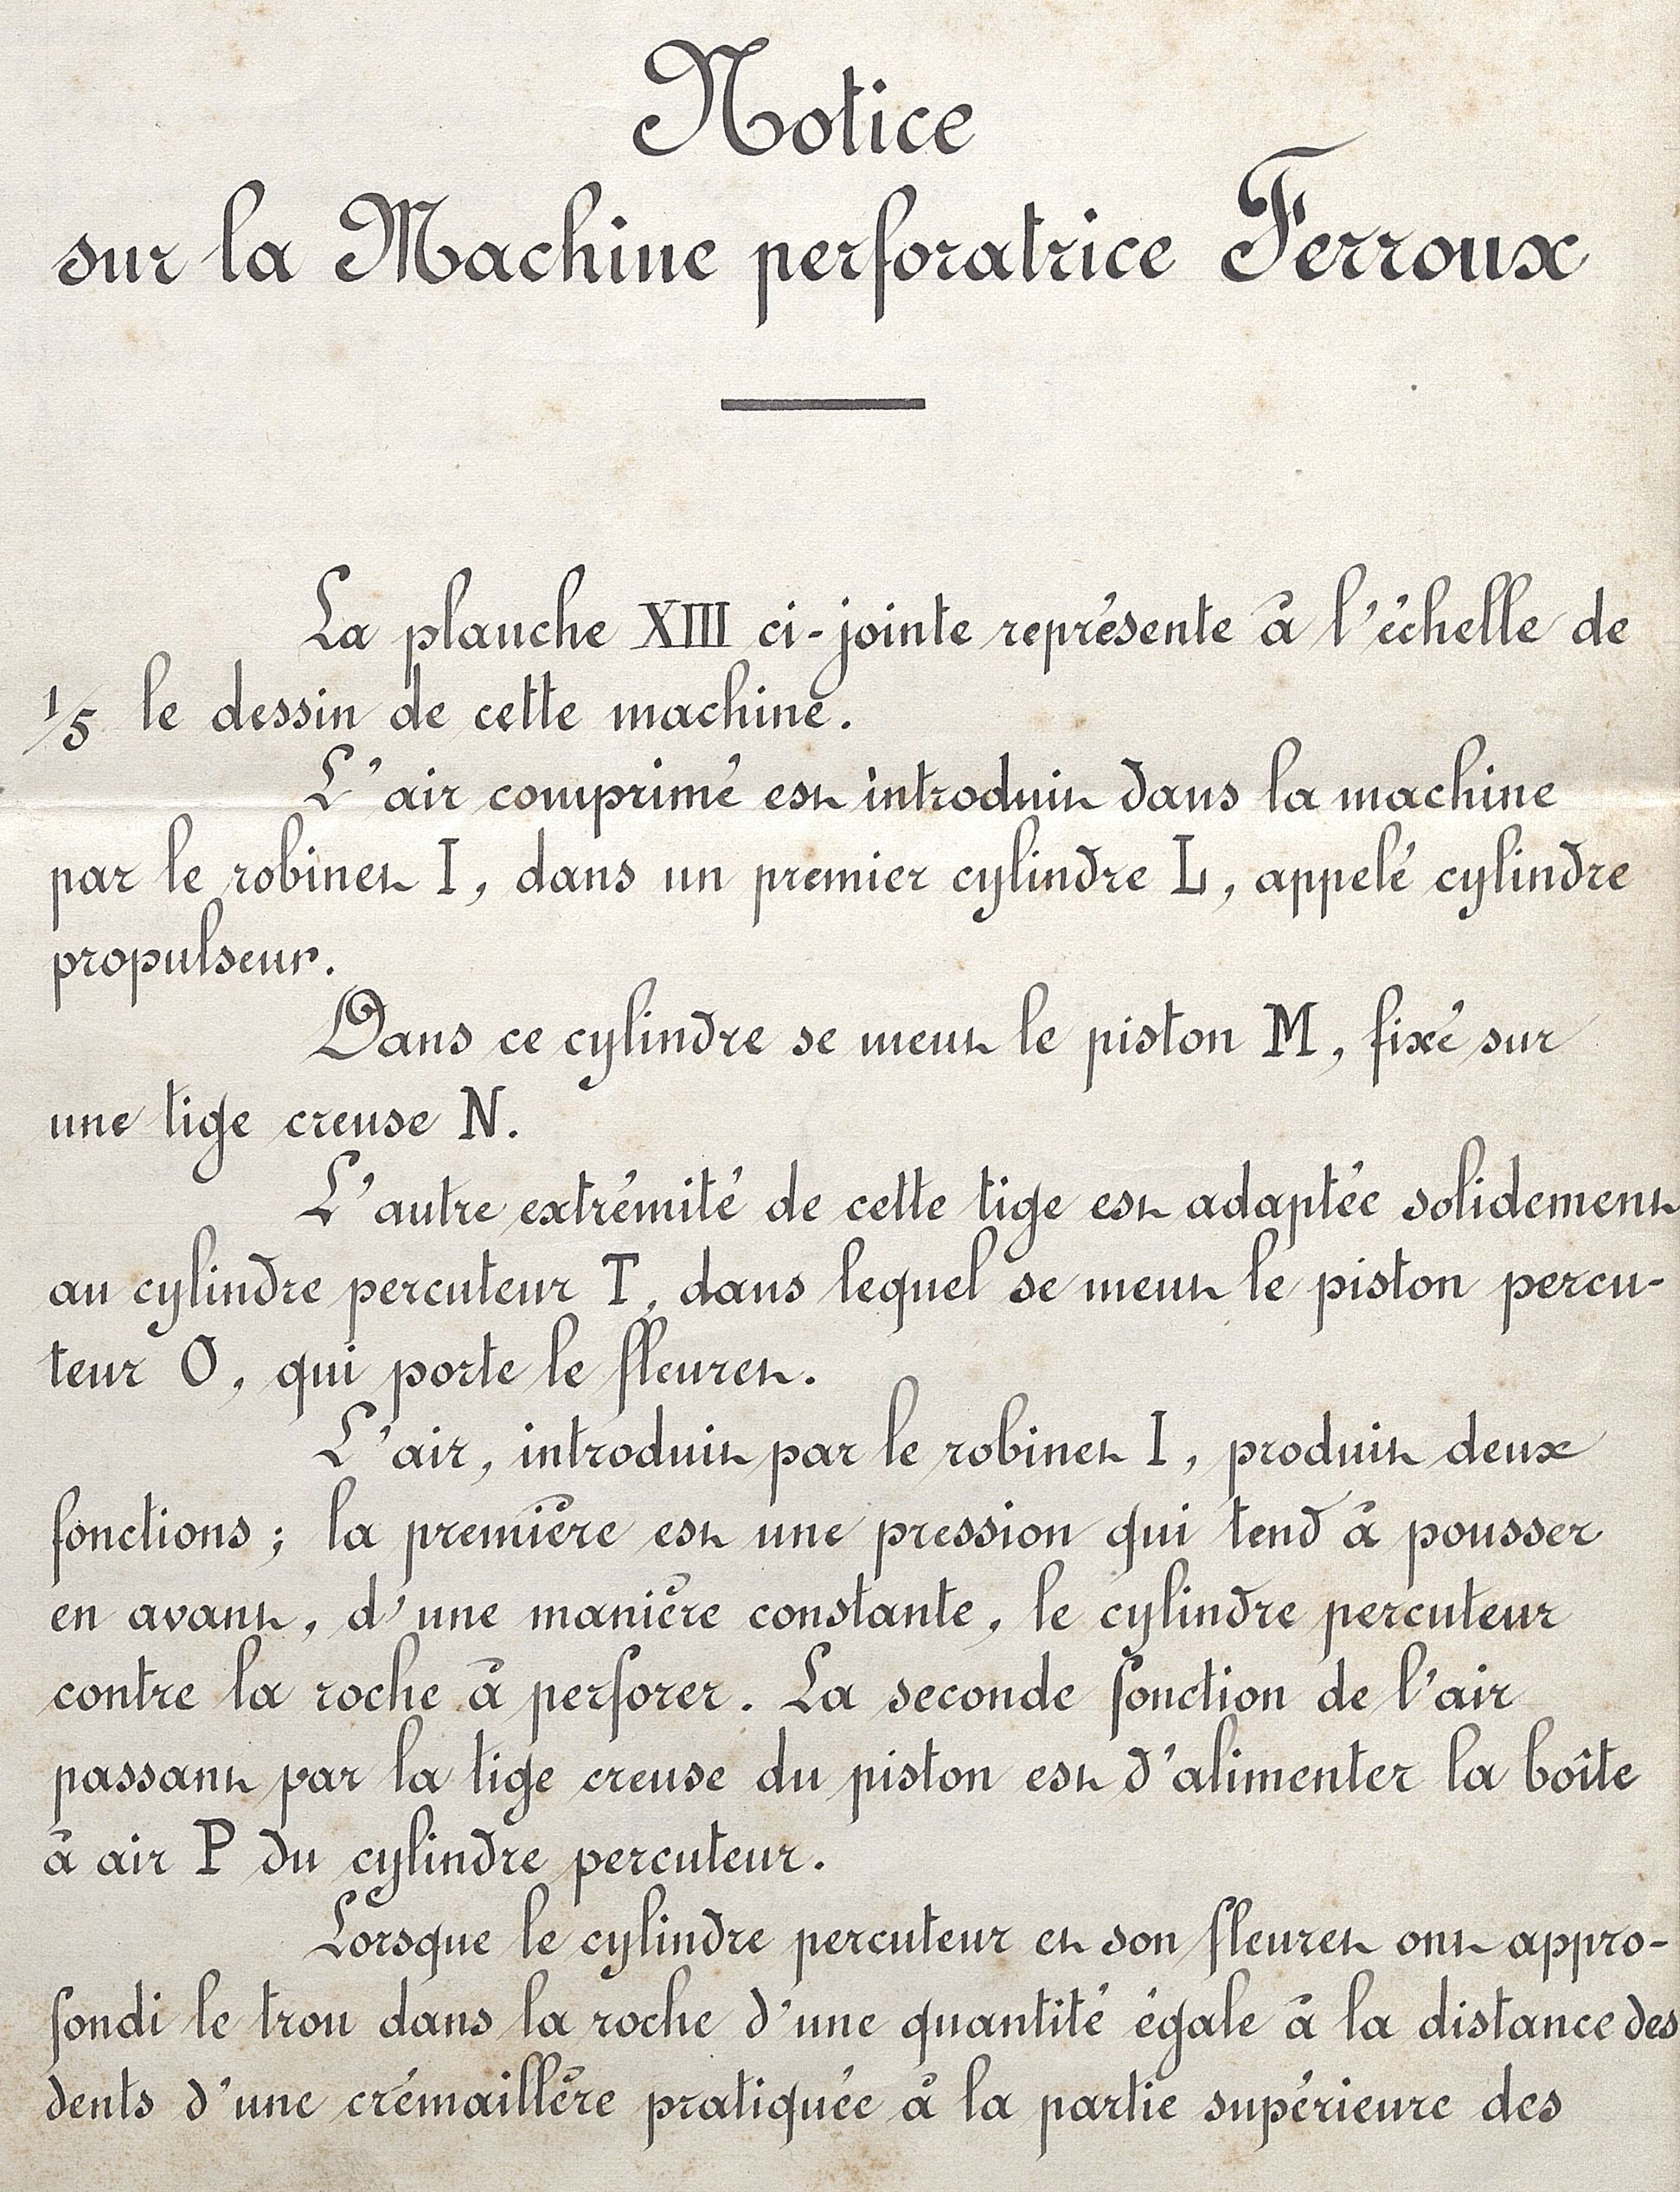 Notice
sur la Machine perforatrice Ferroux
La planche XIII ci-jointe représente à l'échelle de
1/5 le dessin de cette machine.
L'air comprimé est introduit dans la machine
par le robinet I, dans un premier cylindre L, appelé cylindre
propulseur.
Dans ce cylindre se meut le piston M, fixé sur
une tige creuse N.
L'autre extrémité de cette tige est adaptée solidement
au cylindre percuteur T, dans lequel se meut le piston percu-
teur O, qui porte le fleuret.
L'air, introduit par le robinet I, produit deux
fonctions ; la première est une pression qui tend à pousser
en avant, d'une manière constante, le cylindre percuteur
contre la roche à perforer. La seconde fonction de l'air
passant par la tige creuse du piston est d'alimenter la boîte
à air P du cylindre percuteur.
Lorsque le cylindre percuteur et son fleuret ont appro-
fondi le trou dans la roche d'une quantité égale à la distance des
dents d'une crémaillère pratiquée à la partie supérieure des